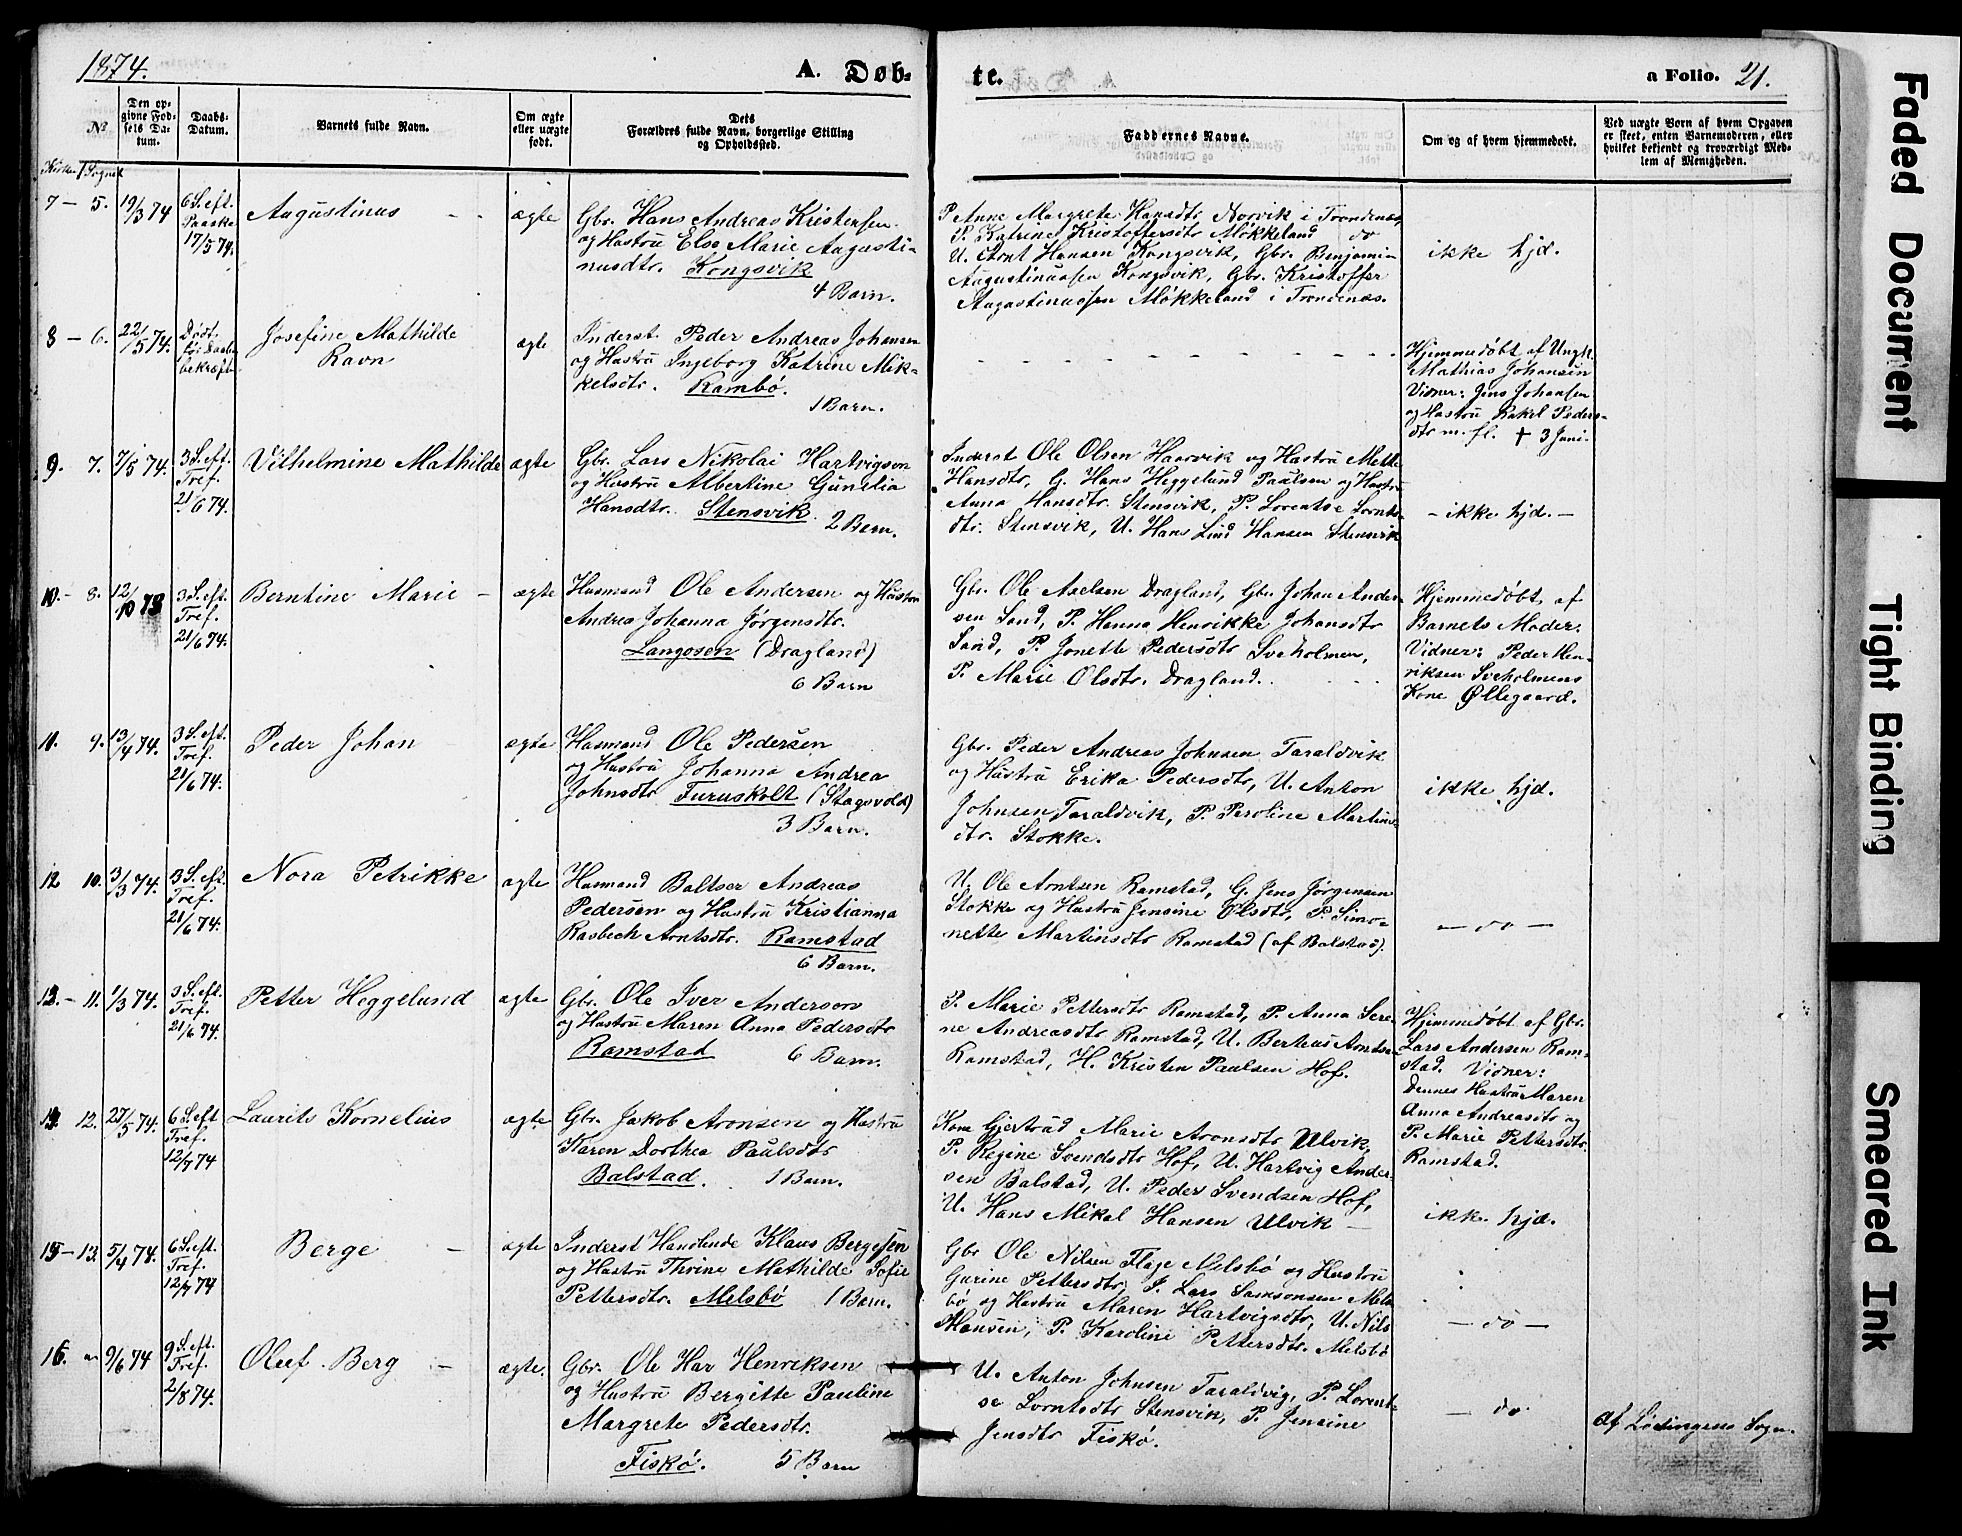 1874.
A. Døb-
te.
a Folio. 21.
No
Den op-
givne Fød-
sels Da-
tum.
Daabs-
Datum.
Barnets fulde Navn.
Om ægte
eller uægte
født.
Dets
Forældres fulde Navn, borgerlige Stilling
og Opholdssted.
Faddernes Navne.
Om og af hvem hjemmedøbt.
Ved uægte Børn af hvem Opgaven
er skeet, enten Barnemoderen, eller
hvilket bekjendt og troværdigt Med-
lem af Menigheden.
7 - 5.
19/3 74
6 S. eft.
Paaske
17/5 74.
Augustinus
ægte
Gbr. Hans Andreas Kristensen
og Hustru Else Marie Augusti-
nusdtr. Kongsvik
4 Barn.
P. Anne Margrete Hansdtr Norvik i Trondenæs,
P. Katrine Kristoffersdtr Møkkeland do
U. Arnt Hansen Kongsvik, Gbr. Benjamin
Augustinussen Kongsvik, Gbr. Kristoffer
Augustinussen Møkkeland i Trondenæs.
ikke hjd.
8 - 6.
22/5 74.
Død
før Daabs
bekræft
Josefine Mathilde
Ravn
ægte
Inderst Peder Andreas Johansen
og Hustru Ingeborg Katrine Mik-
kelsdtr. Rambø.
1 Barn.
Hjemmedøbt af Ungk.
Mathias Johansen
Vidner: Jens Johansen
og Hustru Rakel Peders-
dtr m. fl. † 3 Juni.
9. 7.
7/5 74.
3 S. eft.
Tref.
21/6 74.
Vilhelmine Mathilde
ægte
Gbr. Lars Nikolai Hartvigsen
og Hustru Albertine Gunelia
Hansdtr. Stensvik.
2 Barn.
Inderst Ole Olsen Haarvik og Hustru Mette
Hansdtr, G. Hans Heggelund Paulsen og Hustru
Anna Hansdtr. Stensvik, P. Lorentse Lornts-
dtr. Stensvik, U. Hans Lind Hansen Stensvik
- ikke hjd. -
10. - 8.
12/10 73
3 S. eft.
Tref.
21/6 74.
Berntine Marie -
ægte
Husmand Ole Andersen og Hustru
Andrea Johanna Jørgensdtr.
Langosen (Dragland)
6 Barn
Gbr. Ole Axelsen Dragland, Gbr. Johan Ander-
sen Sand, P. Hanna Henrikke Johansdtr
Sand, P. Jonette Pedersdtr Sveholmen,
P. Marie Olsdtr. Dragland.
Hjemmedøbt af
Barnets Moder.
Vidner: Peder Hen-
riksen Sveholmens
Kone Øllegaard.
11. 9.
13/4 74.
3 S. eft.
Tref.
21/6 74.
Peder Johan
ægte
Husmand Ole Pedersen
og Hustru Johanna Andrea
Johnsdtr Furuskolt (Stagsvold)
3 Barn.
Gbr. Peder Andreas Johnsen Taraldvik
og Hustru Erika Pedersdtr, U. Anton
Johnsen Taraldvik, P. Peroline Martins-
dtr. Stokke.
ikke hjd.
12 10.
3/3 74.
3 S. eft.
Tref.
21/6 74.
Nora Petrikke
ægte
Husmand Baltser Andreas
Pedersen og Hustru Kristianna
Rasbech Arntsdtr. Ramstad
6 Barn.
U. Ole Arntsen Ramstad, G. Jens Jørgensen
Stokke og Hustru Jensine Olsdtr, P. Simo-
nette Martinsdtr Ramstad (af Balstad).
- do -
13. - 11.
1/3 74.
3 S. eft.
Tref.
21/6 74.
Petter Heggelund
ægte
Gbr. Ole Iver Andersen
og Hustru Maren Anna Pedersdtr
Ramstad 6 Barn.
P. Marie Pettersdtr Ramstad, P. Anna Sere-
ne Andreasdtr Ramstad, U. Berteus Arntsen
Ramstad, H. Kristen Paulsen Hof.
Hjemmedøbt af Gbr.
Lars Andersen Ram-
stad. Vidner:
Dennes Hustru Maren
Anna Andreasdtr og
P. Marie Pettersdtr.
Ramstad.
12.
27/5 74.
6 S. eft
Tref.
12/7 74
Laurits Kornelius
ægte
Gbr. Jakob Aronsen og Hustru
Karen Dorthea Paulsdtr
Balstad. 1 Barn.
Kone Gjertrud Marie Aronsdtr Ulvik,
P. Regine Svendsdtr Hof, U. Hartvig Ander-
sen Balstad, U. Peder Svendsen Hof,
U. Hans Mikal Hansen Ulvik -
ikke hjd.
15 - 13.
5/4 74.
6 S. eft.
Tref.
12/7 74
Berge -
ægte
Inderst Handlende Klaus Bergesen
og Hustru Thrine Mathilde Sofie
Pettersdtr. Melsbø 1 Barn.
Gbr Ole Nilsen Flage Melsbø og Hustru
Gurine Pettersdtr, I. Lars Samsonsen Mels-
bø og Hustru Maren Hartvigsdtr, U. Nils
Hansen, P. Karoline Pettersdtr. Melsbø
- do -
16.
9/6 74
9 S. eft.
Tref.
2/8 74.
Oluf Berg -
ægte.
Gbr. Ole Har Henriksen
og Hustru Bergitte Pauline
Margrete Pedersdtr.
Fiskø. 5 Barn
U. Anton Johnsen Taraldvig, P. Lorent-
se Lorntsdtr Stensvik, P. Jensine
Jensdtr Fiskø.
- do
Af Lødingens Sogn.
Faded Document
Tight Binding
Smeared Ink